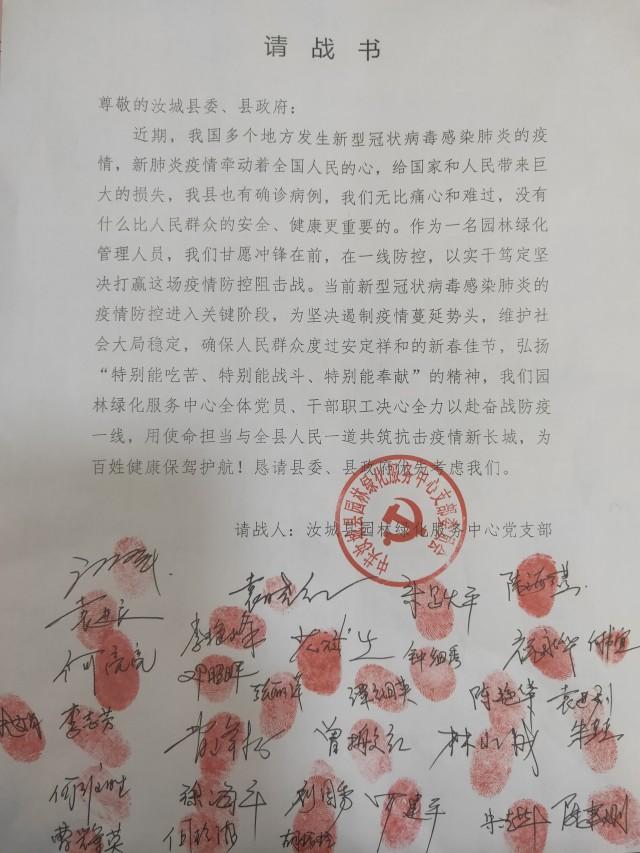 请战书
尊敬的汝城县委、县政府：
近期，我国多个地方发生新型冠状病毒感染肺炎的疫
情，新肺炎疫情牵动着全国人民的心，给国家和人民带来巨
大的损失，我县也有确诊病例，我们无比痛心和难过，没有
什么比人民群众的安全、健康更重要的。作为一名园林绿化
管理人员，我们甘愿冲锋在前，在一线防控，以实干笃定坚
决打赢这场疫情防控阻击战。当前新型冠状病毒感染肺炎的
疫情防控进入关键阶段，为坚决遏制疫情蔓延势头，维护社
会大局稳定，确保人民群众度过安定祥和的新春佳节，弘扬
“特别能吃苦、特别能战斗、特别能奉献”的精神，我们园
林绿化服务中心全体党员、干部职工决心全力以赴奋战防疫
一线，用使命担当与全县人民一道共筑抗击疫情新长城，为
百姓健康保驾护航！恳请县委、县政府优先考虑我们。
中共汝城县园林绿化服务中心支部委员会
请战人：汝城县园林绿化服务中心党支部
何亮亮 钟细秀
李志芳 林小成